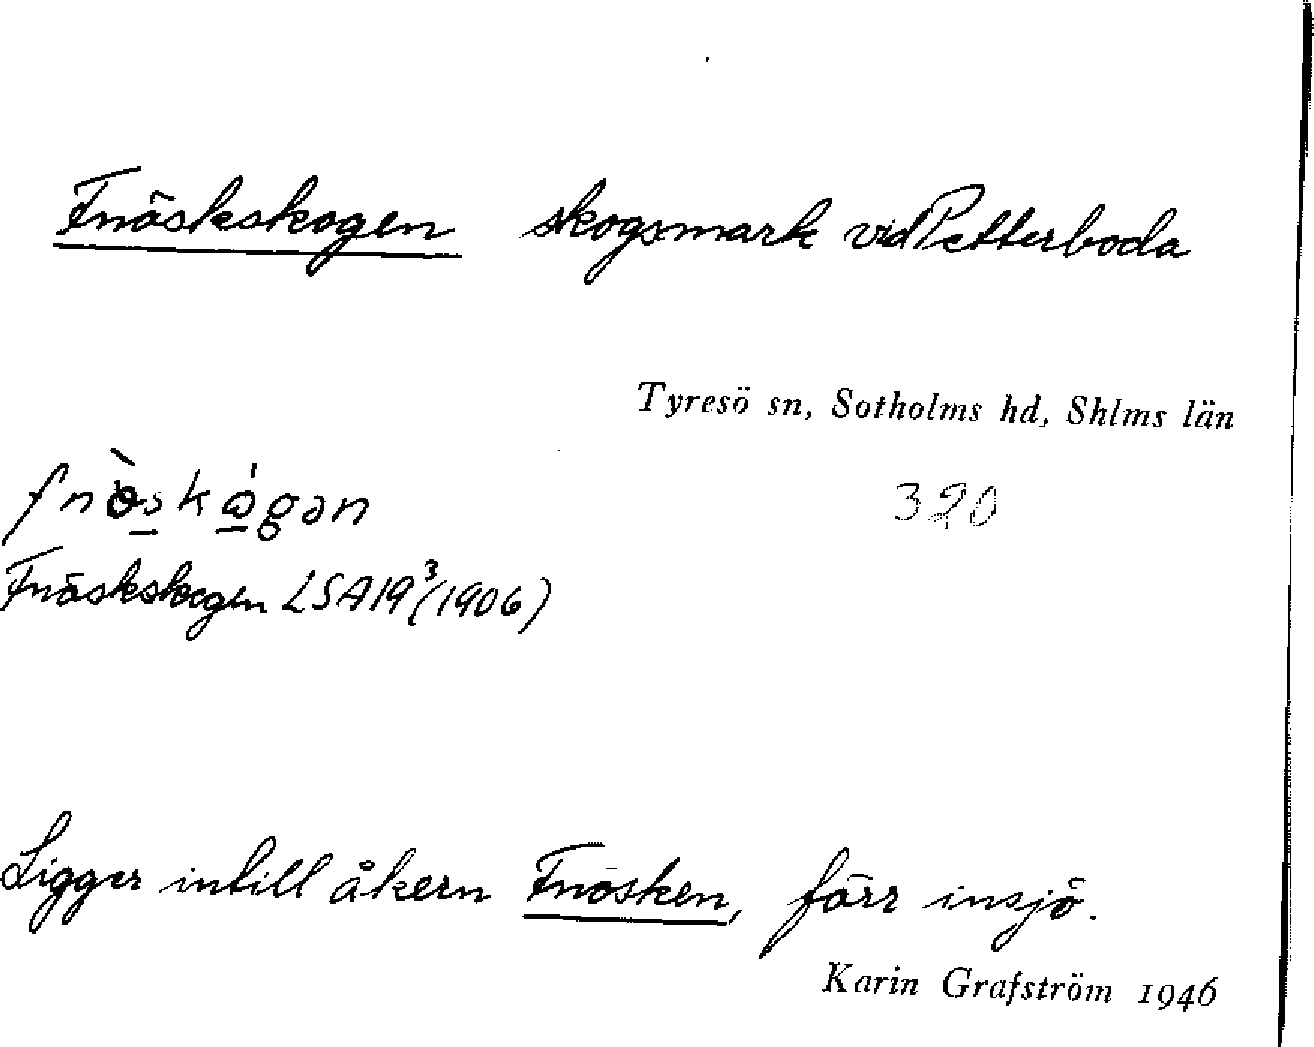 Fnöskskogen skogsmark vid Petterboda
Tyresö sn, Sotholms hd, Shlms län
320
Fnöskskogen LSA19³(1906)
Ligger intill åkern Fnösken, förr insjö.
Karin Grafström 1946